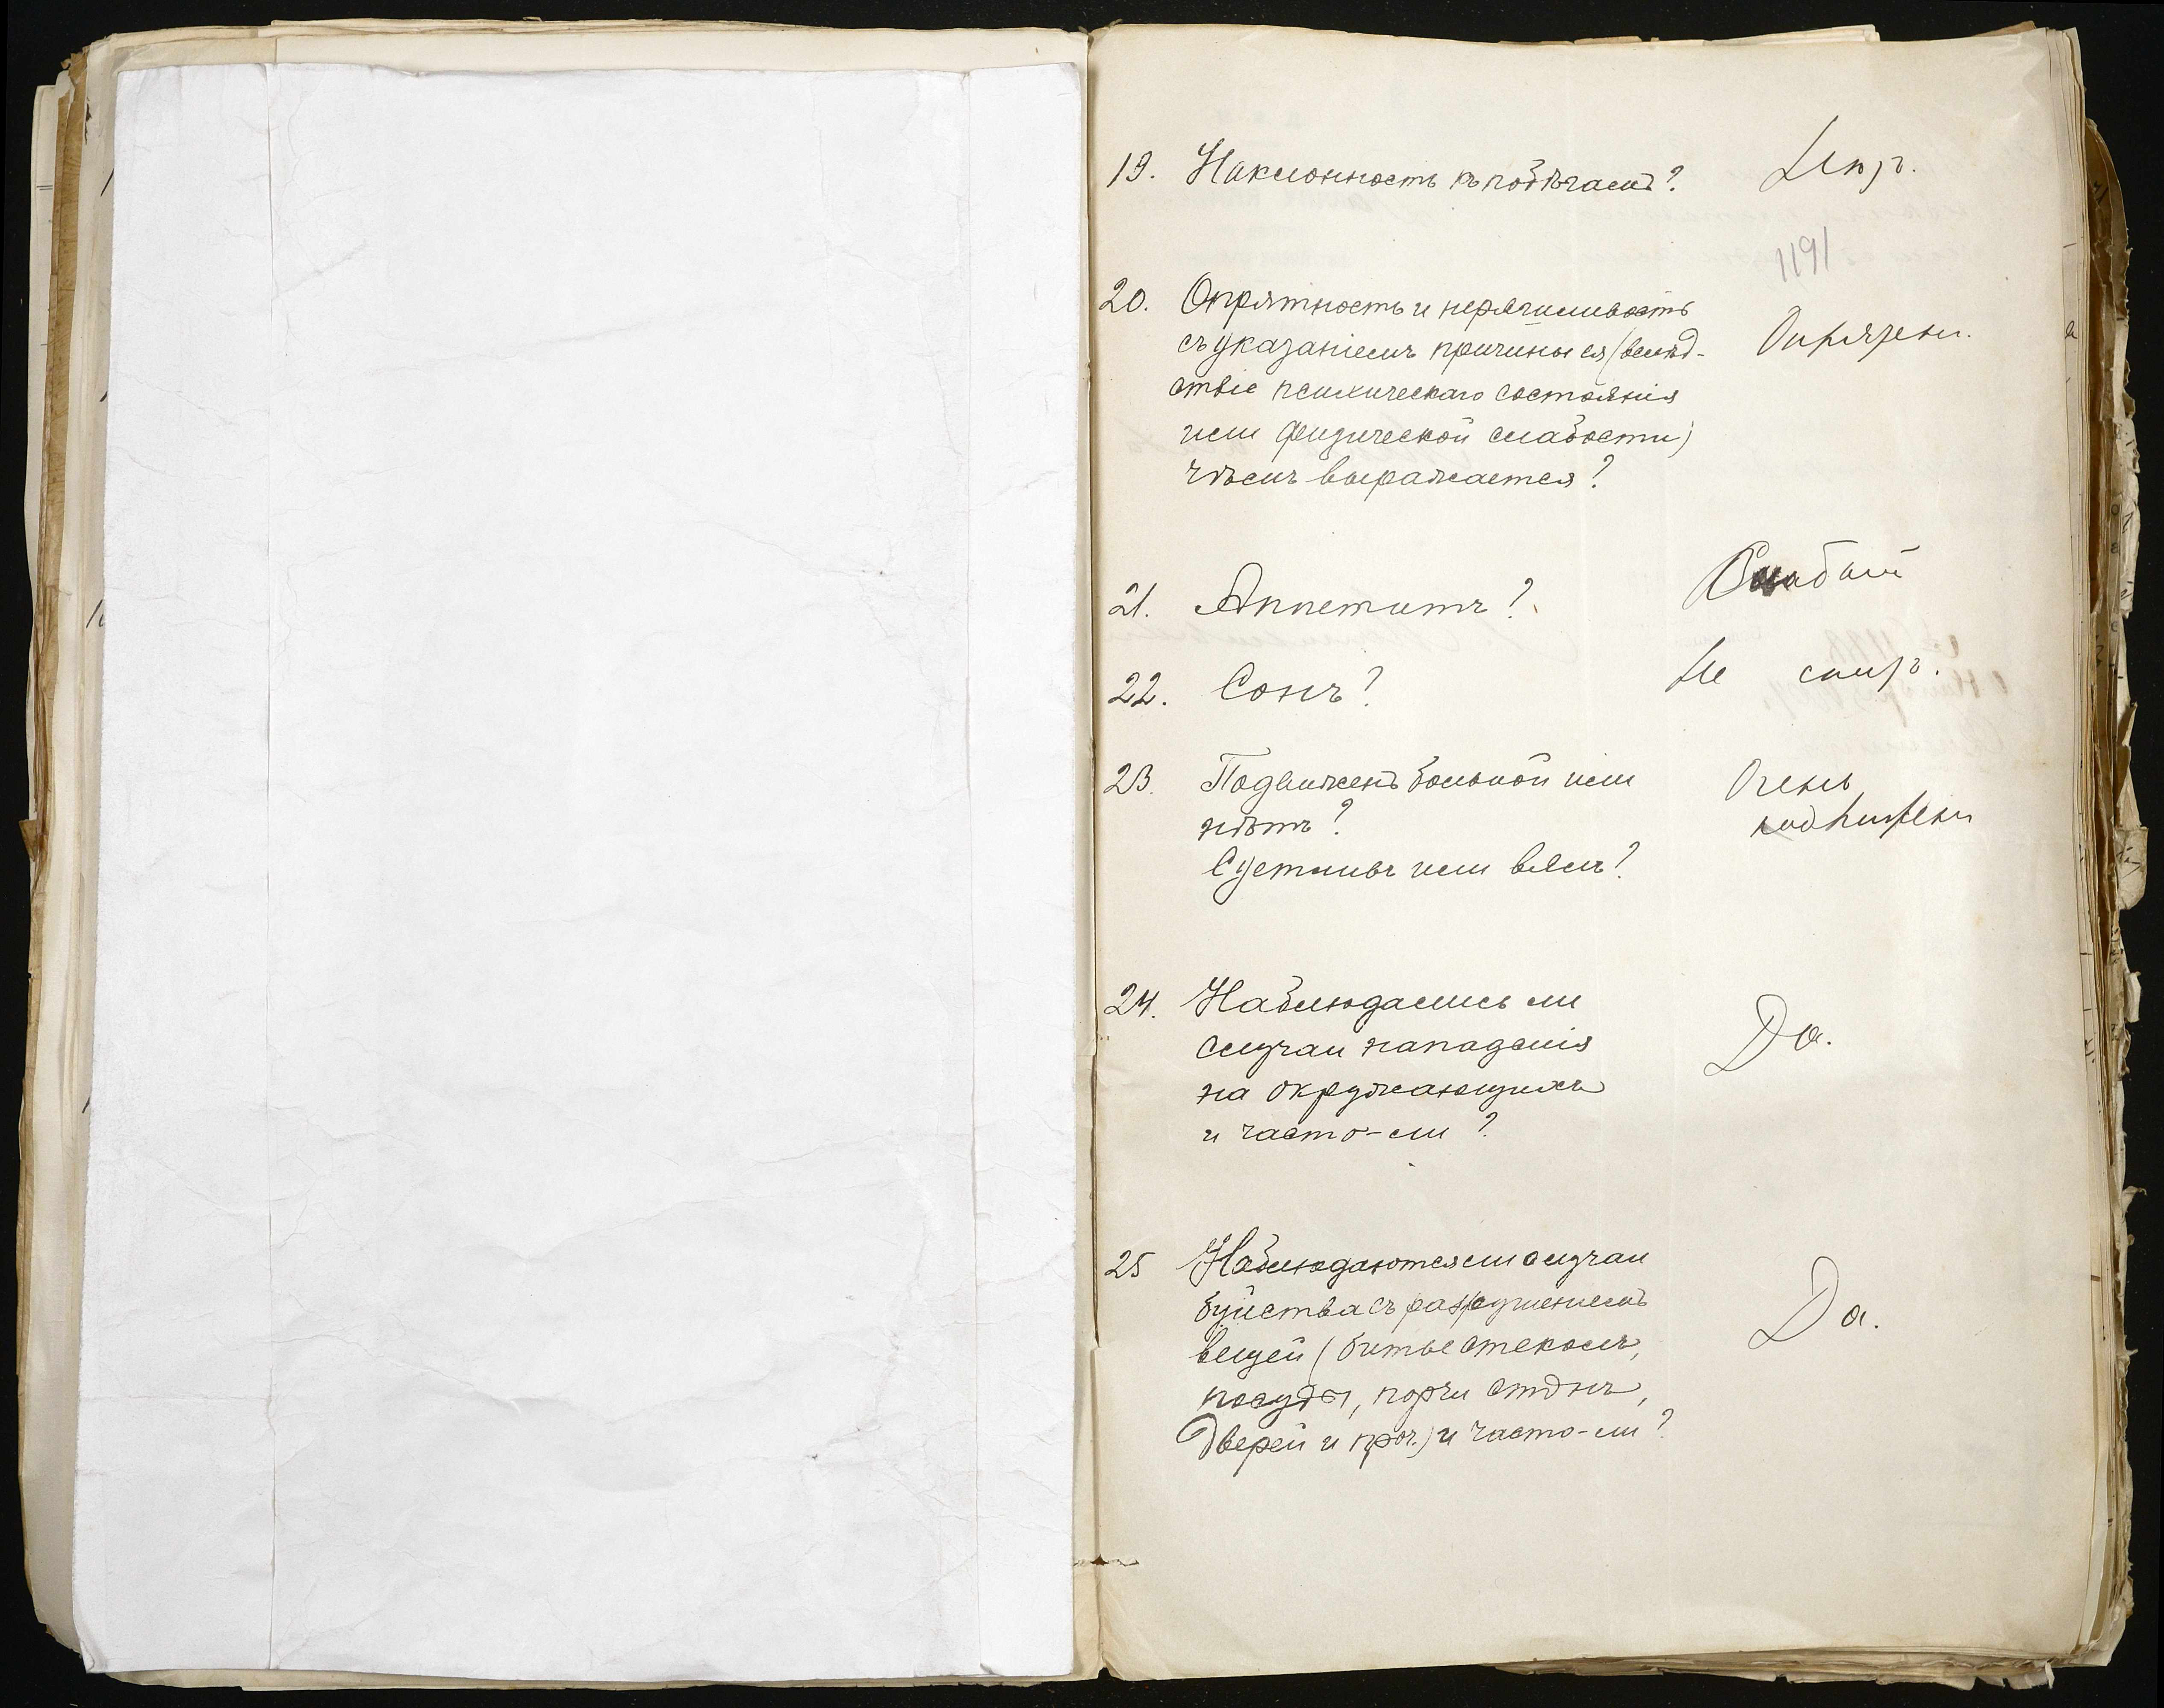 19. Наклонность къ побѣгамъ? Нѣтъ.
1191
20. Опрятность и неряшливость
съ указаніемъ причины ея (вслѣд-
ствіе психическаго состоянія
или физической слабости)
чѣмъ выражается?
Опрятенъ.
21. Аппетитъ? Слабый
22. Сонъ? Не спитъ.
23. Подвиженъ больной или
нѣтъ?
Суетливъ или вялъ?
Очень
подвиженъ
24. Наблюдались ли
случаи нападенія
на окружающихъ
и часто-ли?
Да.
25 Наблюдаются ли случаи
буйства съ разрушеніемъ
вещей (битье стеколъ,
посуды, порчи стѣнъ,
дверей и проч.) и часто-ли?
Да.